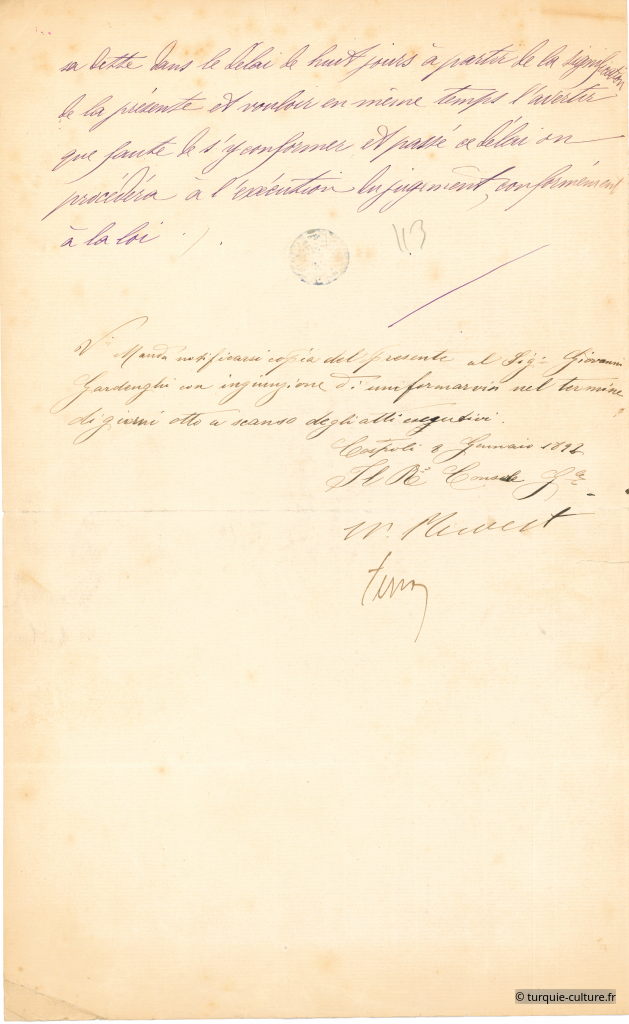 sa dette dans le délai de huit jours à partir de la signification
de la présente et vouloir en même temps l'avertir
que faute de s'y conformer et passé ce délai on
procédera à l'exécution du jugement, conformément
à la loi
113
Manda notificarsi copia del presente al Sigr Giovanni
Gardenghi con ingiunzione di uniformarvisi nel termine
di giorni otto a scanso degli atti esecutivi.
Costpoli 8 Gennaio 1892
Il Ro Console
© turquie-culture.fr